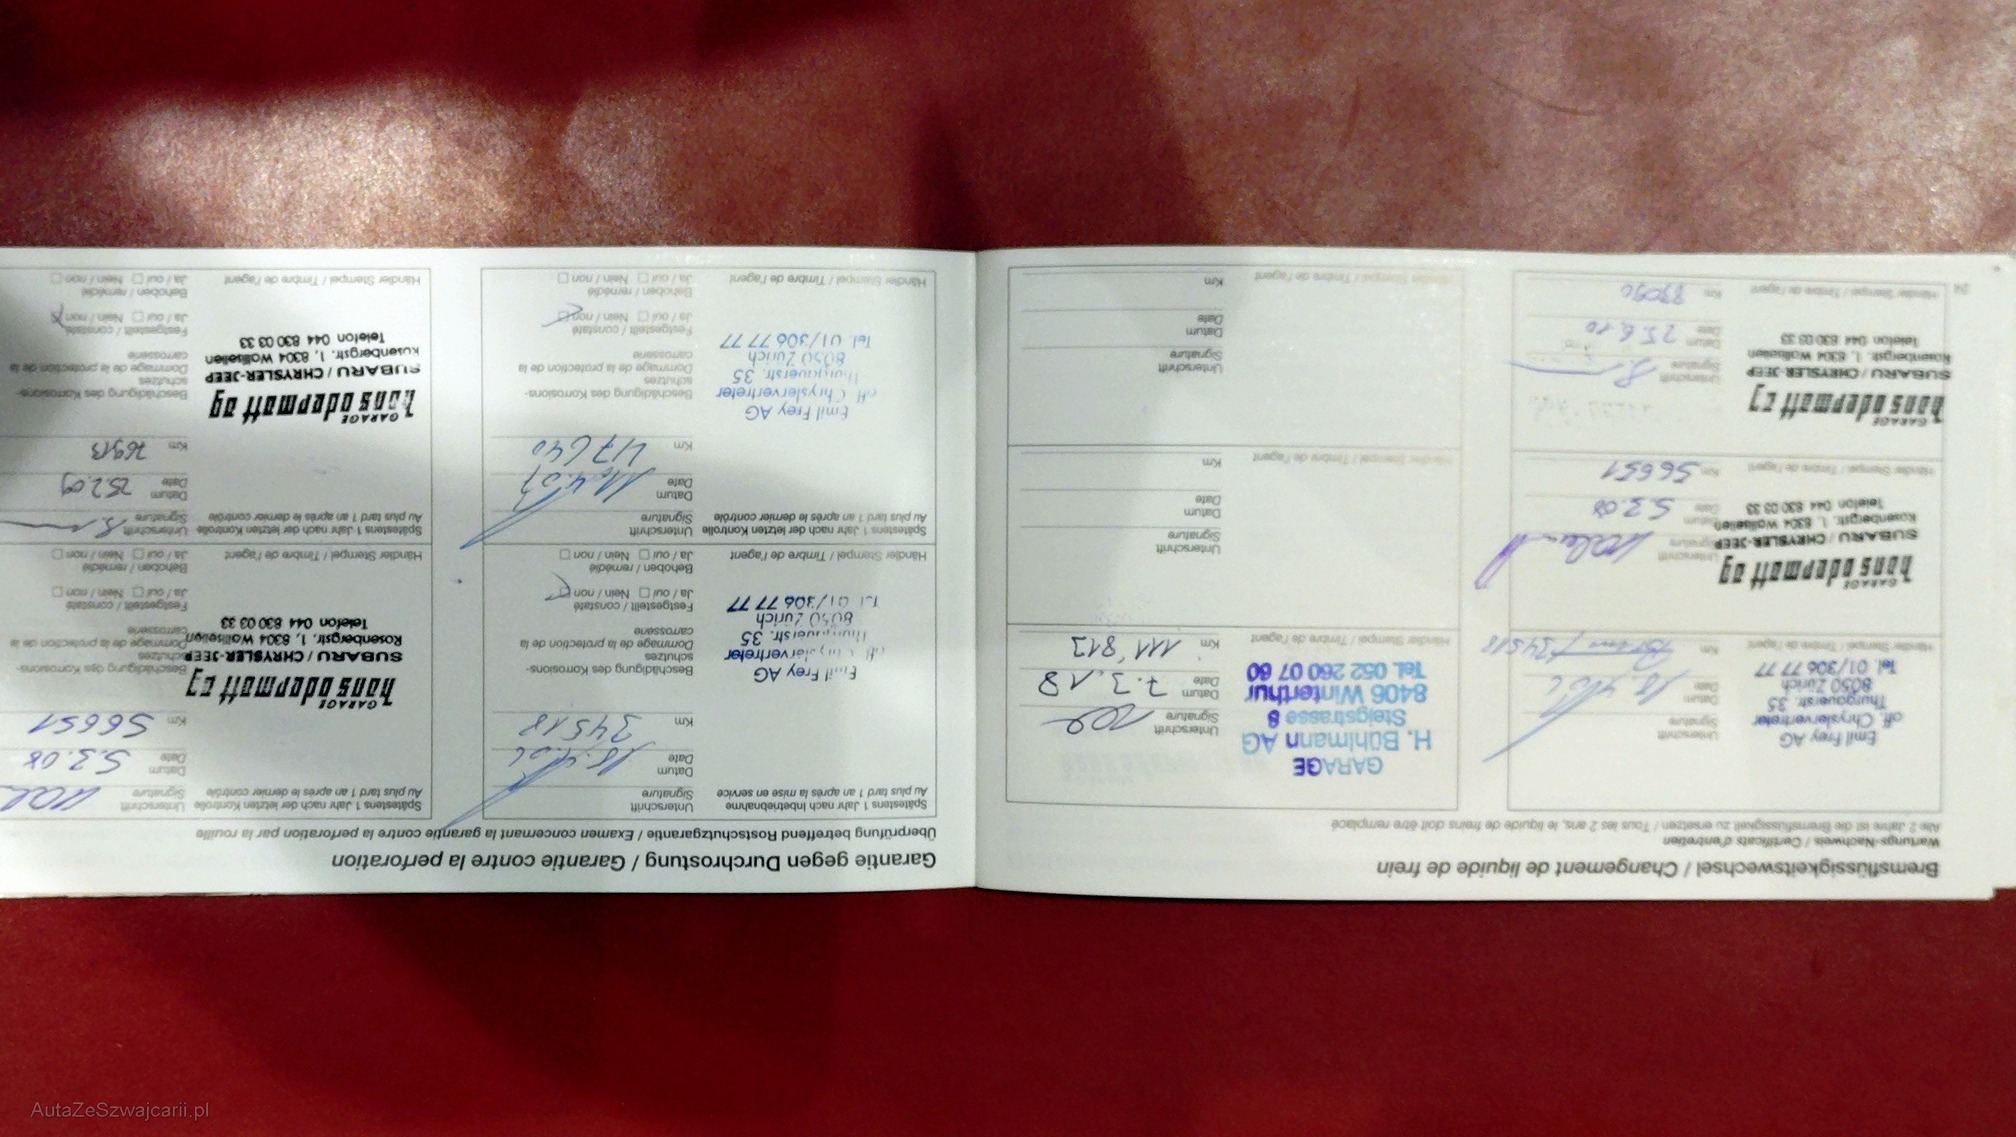 Bremsflüssigkeitswechsel / Changement de liquide de frein
Wartungs-Nachweis / Certificats d'entretien
Alle 2 Jahre ist die Bremsflüssigkeit zu ersetzen / Tous les 2 ans, le liquide de freins doit être remplacé
Unterschrift
Signature
Datum
Date
Km 34518
Emil Frey AG
off. Chryslervertreter
Thurgauerstr. 35
8050 Zürich
Tel. 01/306 77 77
Händler Stempel / Timbre de l'agent
Unterschrift
Signature
Datum
Date 5.3.08
Km 56651
GARAGE
hans odermatt ag
SUBARU / CHRYSLER-JEEP
Rosenbergstr. 1, 8304 Wallisellen
Telefon 044 830 03 33
Händler Stempel / Timbre de l'agent
Unterschrift
Signature
Datum
Date 25.6.10
Km
GARAGE
hans odermatt ag
SUBARU / CHRYSLER-JEEP
Rosenbergstr. 1, 8304 Wallisellen
Telefon 044 830 03 33
Händler Stempel / Timbre de l'agent
24
GARAGE
H. Bühlmann AG
Steigstrasse 8
8406 Winterthur
Tel. 052 260 07 60
Händler Stempel / Timbre de l'agent
Unterschrift
Signature
Datum
Date 7.3.18
Km 111'813
Händler Stempel / Timbre de l'agent
Unterschrift
Signature
Datum
Date
Km
Händler Stempel / Timbre de l'agent
Unterschrift
Signature
Datum
Date
Km
Garantie gegen Durchrostung / Garantie contre la perforation
Überprüfung betreffend Rostschutzgarantie / Examen concernant la garantie contre la perforation par la rouille
Spätestens 1 Jahr nach Inbetriebnahme
Au plus tard 1 an après la mise en service
Unterschrift
Signature
Datum
Date
Km 34518
Emil Frey AG
off. Chryslervertreter
Thurgauerstr. 35
8050 Zürich
Tel. 01/306 77 77
Beschädigung des Korrosions-
schutzes
Dommage de la protection de la
carrosserie
Festgestellt / constaté
Ja / oui □ Nein / non □
Behoben / remédié
Ja / oui □ Nein / non □
Händler Stempel / Timbre de l'agent
Spätestens 1 Jahr nach der letzten Kontrolle
Au plus tard 1 an après le dernier contrôle
Unterschrift
Signature
Datum
Date
Km 47640
Emil Frey AG
off. Chryslervertreter
Thurgauerstr. 35
8050 Zürich
Tel. 01/306 77 77
Beschädigung des Korrosions-
schutzes
Dommage de la protection de la
carrosserie
Festgestellt / constaté
Ja / oui □ Nein / non □
Behoben / remédié
Ja / oui □ Nein / non □
Händler Stempel / Timbre de l'agent
Spätestens 1 Jahr nach der letzten Kontrolle
Au plus tard 1 an après le dernier contrôle
Unterschrift
Signature
Datum
Date 5.3.08
Km 56651
GARAGE
hans odermatt ag
SUBARU / CHRYSLER-JEEP
Rosenbergstr. 1, 8304 Wallisellen
Telefon 044 830 03 33
Beschädigung des Korrosions-
schutzes
Dommage de la protection de la
carrosserie
Festgestellt / constaté
Ja / oui □ Nein / non □
Behoben / remédié
Ja / oui □ Nein / non □
Händler Stempel / Timbre de l'agent
Spätestens 1 Jahr nach der letzten Kontrolle
Au plus tard 1 an après le dernier contrôle
Unterschrift
Signature
Datum
Date 25.2.09
Km 76913
GARAGE
hans odermatt ag
SUBARU / CHRYSLER-JEEP
Rosenbergstr. 1, 8304 Wallisellen
Telefon 044 830 03 33
Beschädigung des Korrosions-
schutzes
Dommage de la protection de la
carrosserie
Festgestellt / constaté
Ja / oui □ Nein / non □
Behoben / remédié
Ja / oui □ Nein / non □
Händler Stempel / Timbre de l'agent
AutaZeSzwajcarii.pl